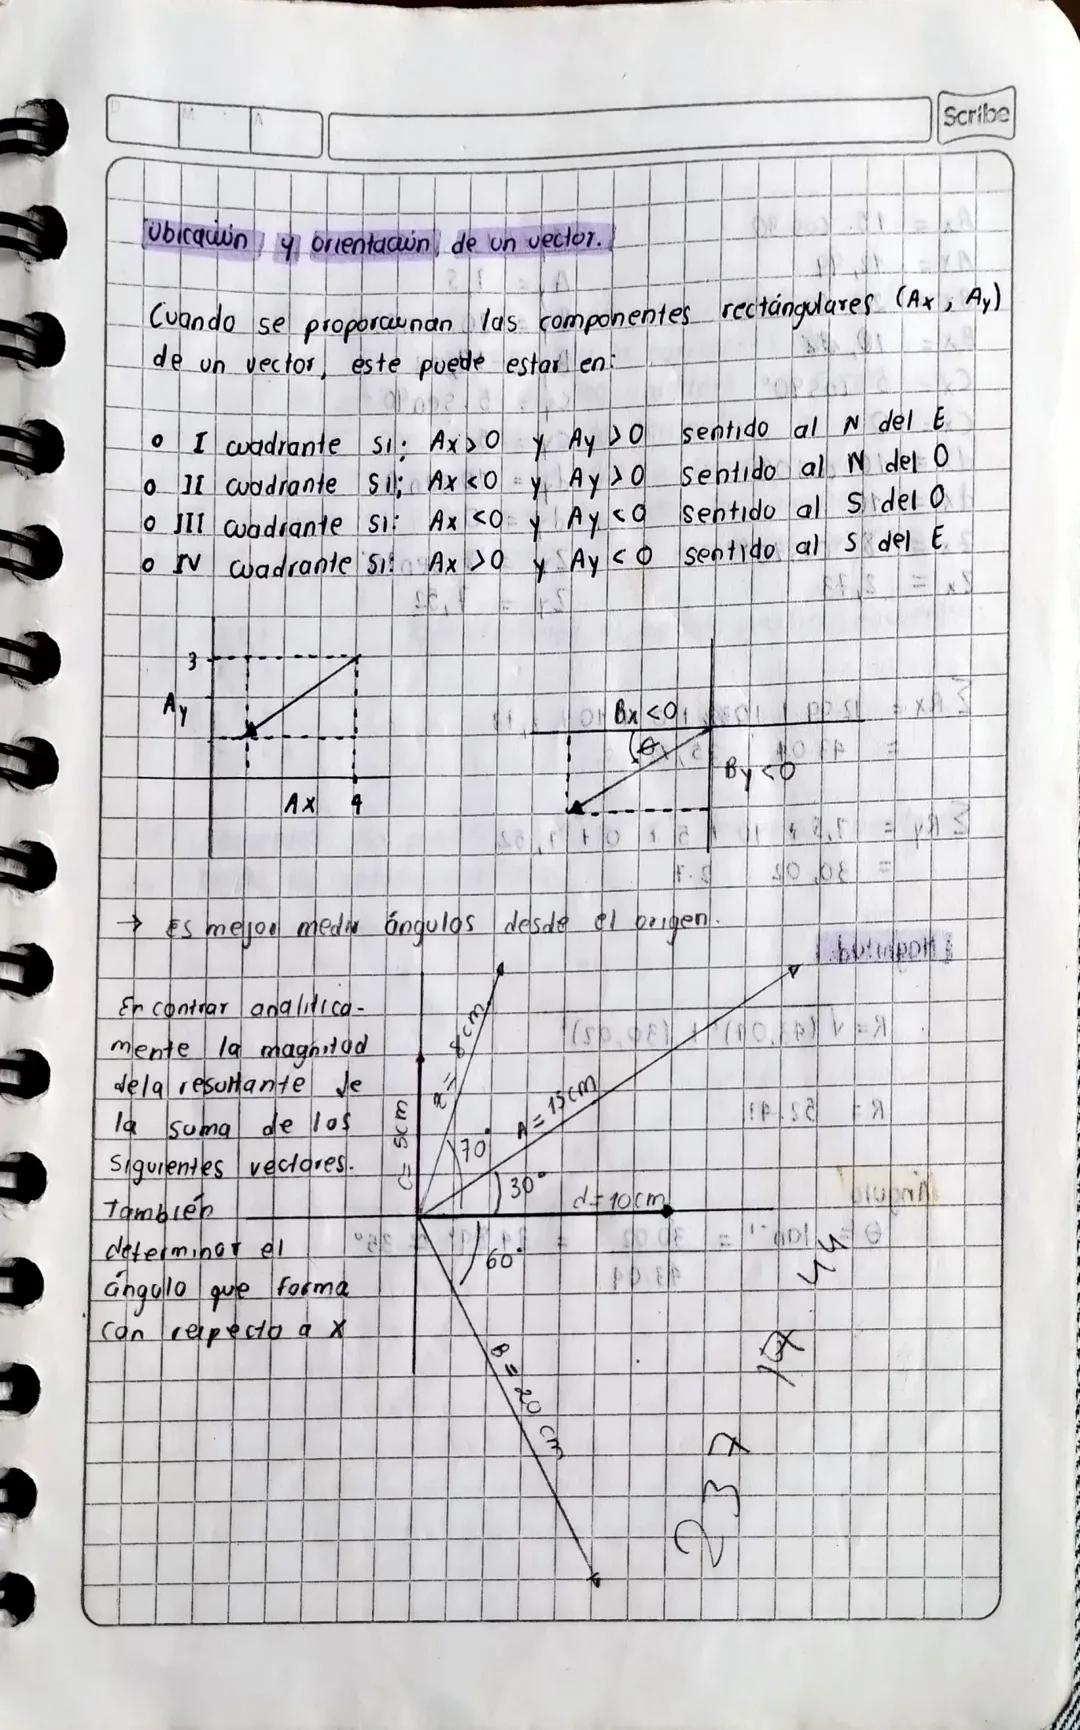 D M A
Scribe
Ubicación y orientación de un vector.
Cuando se proporcionan las componentes rectángulares (Ax, Ay)
de un vector, este puede estar en:
o I cuadrante si: Ax>0 y Ay>0 sentido al N del E
o II cuadrante si: Ax<0 y Ay>0 sentido al N del O
o III cuadrante si: Ax<0 y Ay<0 sentido al S del O
o IV cuadrante si: Ax>0 y Ay<0 sentido al S del E
3
Ay
Ax 4
Bx<0
θ
By<0
→ Es mejor medir ángulos desde el origen.
Encontrar analitica-
mente la magnitud
de la resultante de
la suma de los
siguientes vectores.
También
determinar el
ángulo que forma
con respecto a X
C= 5cm
= 8cm
A= 15cm
70°
30°
d=10cm
60°
B=20cm
44
19
237